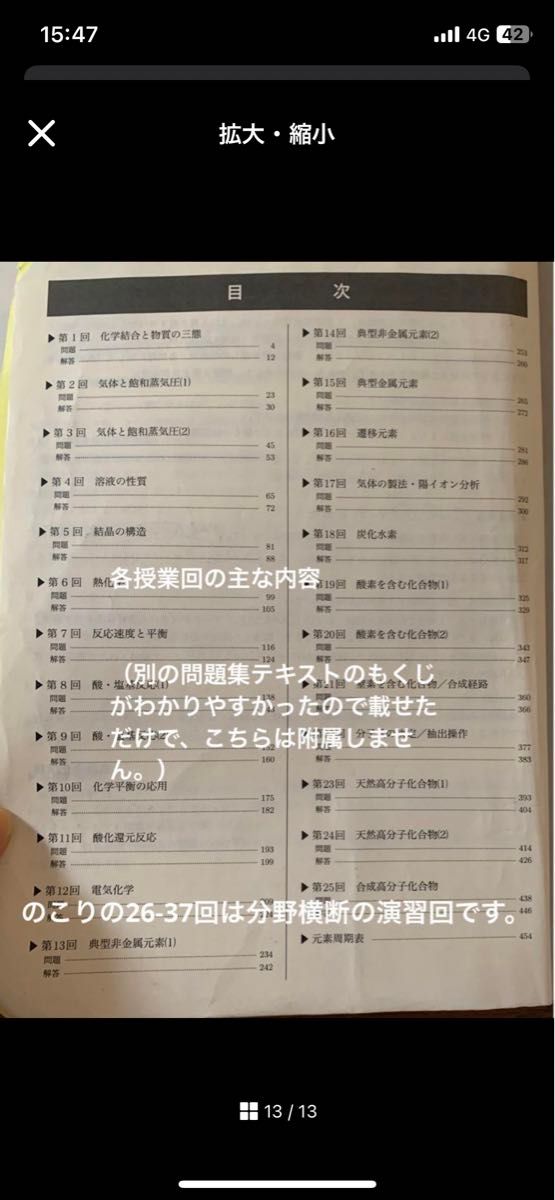 15:47
4G 42
拡大・縮小
目 次
▶第1回 化学結合と物質の三態
問題 4
解答 12
▶第2回 気体と飽和蒸気圧(1)
問題 23
解答 30
▶第3回 気体と飽和蒸気圧(2)
問題 45
解答 53
▶第4回 溶液の性質
問題 65
解答 72
▶第5回 結晶の構造
問題 81
解答 88
▶第6回 熱化
問題 99
解答 105
▶第7回 反応速度と平衡
問題 116
解答 124
▶第8回 酸・塩基反応(1)
問題 138
解答
▶第9回 酸・塩
問題
解答 160
▶第10回 化学平衡の応用
問題 175
解答 182
▶第11回 酸化還元反応
問題 193
解答 199
▶第12回 電気化学
▶第13回 典型非金属元素(1)
問題 234
解答 242
▶第14回 典型非金属元素(2)
問題 251
解答 260
▶第15回 典型金属元素
問題 265
解答 272
▶第16回 遷移元素
問題 281
解答 286
▶第17回 気体の製法・陽イオン分析
問題 292
解答 300
▶第18回 炭化水素
問題 312
解答 317
第19回 酸素を含む化合物(1)
問題 325
解答 329
▶第20回 酸素を含む化合物(2)
問題 343
解答 347
▶第21回 窒素を含む化合物/合成経路
問題 360
解答 366
/抽出操作
377
解答 383
▶第23回 天然高分子化合物(1)
問題 393
解答 404
▶第24回 天然高分子化合物(2)
問題 414
解答 426
▶第25回 合成高分子化合物
438
446
▶元素周期表 454
各授業回の主な内容
(別の問題集テキストのもくじ
がわかりやすかったので載せた
だけで、こちらは附属しませ
ん。)
のこりの26-37回は分野横断の演習回です。
13 / 13